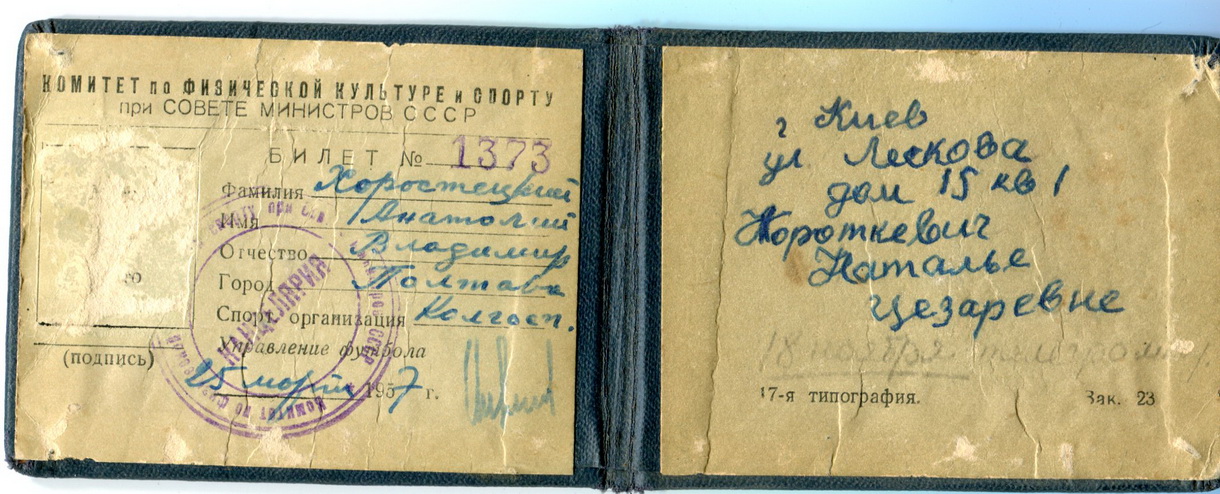 КОМИТЕТ по ФИЗИЧЕСКОЙ КУЛЬТУРЕ и СПОРТУ
при СОВЕТЕ МИНИСТРОВ СССР
БИЛЕТ № 1373
Фамилия Хоростецкий
Имя Анатолий
Отчество Владимир
Город Полтава
Спорт. организация Колгосп.
Управление футбола
(подпись)
25 марта 1957 г.
КАНЦЕЛЯРИЯ
г Киев
ул Лескова
дом 15 кв 1
Короткевич
Наталье
Цезаревне
17-я типография. Зак. 23